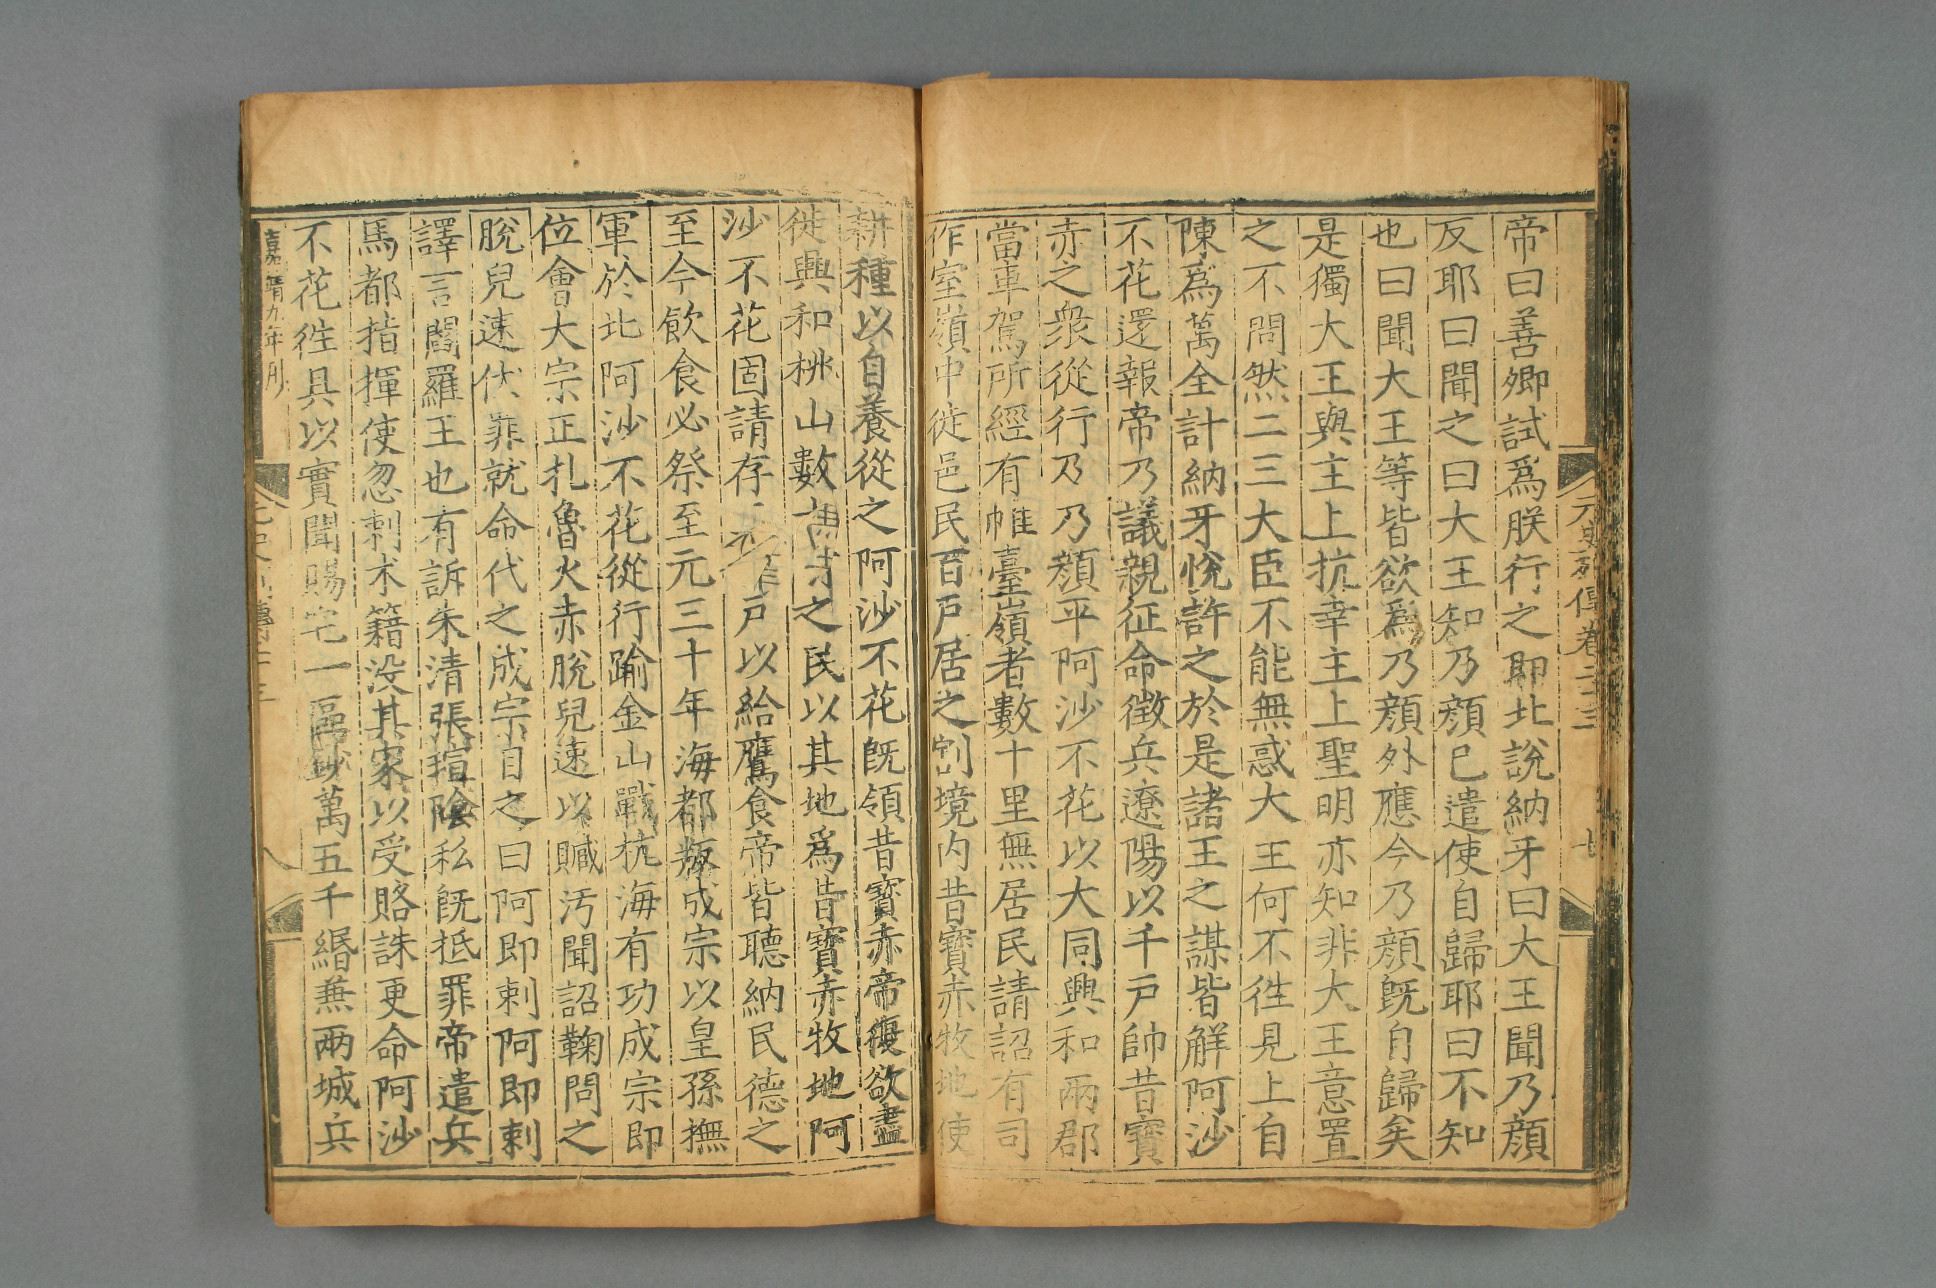 元史列傳卷二十三
帝曰善卿試爲朕行之即北說納牙曰大王聞乃顏
反耶曰聞之曰大王知乃顏已遣使自歸耶曰不知
也曰聞大王等皆欲爲乃顏外應今乃顏旣自歸矣
是獨大王與主上抗幸主上聖明亦知非大王意置
之不問然二三大臣不能無惑大王何不徃見上自
陳爲萬全計納牙悅許之於是諸王之謀皆解阿沙
不花還報帝乃議親征命徵兵遼陽以千戸帥昔寶
赤之衆從行及乃顏平阿沙不花以大同興和兩郡
當車駕所經有帷臺嶺者數十里無居民請詔有司
作室嶺中徙邑民百戸居之割境内昔寶赤牧地使
耕種以自養從之阿沙不花旣領昔寶赤帝復欲盡
徙興和桃山數十村之民以其地爲昔寶赤牧地阿
沙不花固請存戸以給鷹食帝皆聽納民德之
至今飮食必祭至元三十年海都叛成宗以皇孫撫
軍於北阿沙不花從行踰金山戰杭海有功成宗即
位會大宗正札魯火赤脫兒速以贓汚聞詔鞫問之
脫兒速伏罪就命代之成宗目之曰阿即剌阿即剌
譯言閻羅王也有訴朱清張瑄陰私旣抵罪帝遣兵
馬都指揮使忽剌朮籍没其家以受賂誅更命阿沙
不花徃具以實聞賜宅一區鈔萬五千緡兼兩城兵
嘉靖九年刋